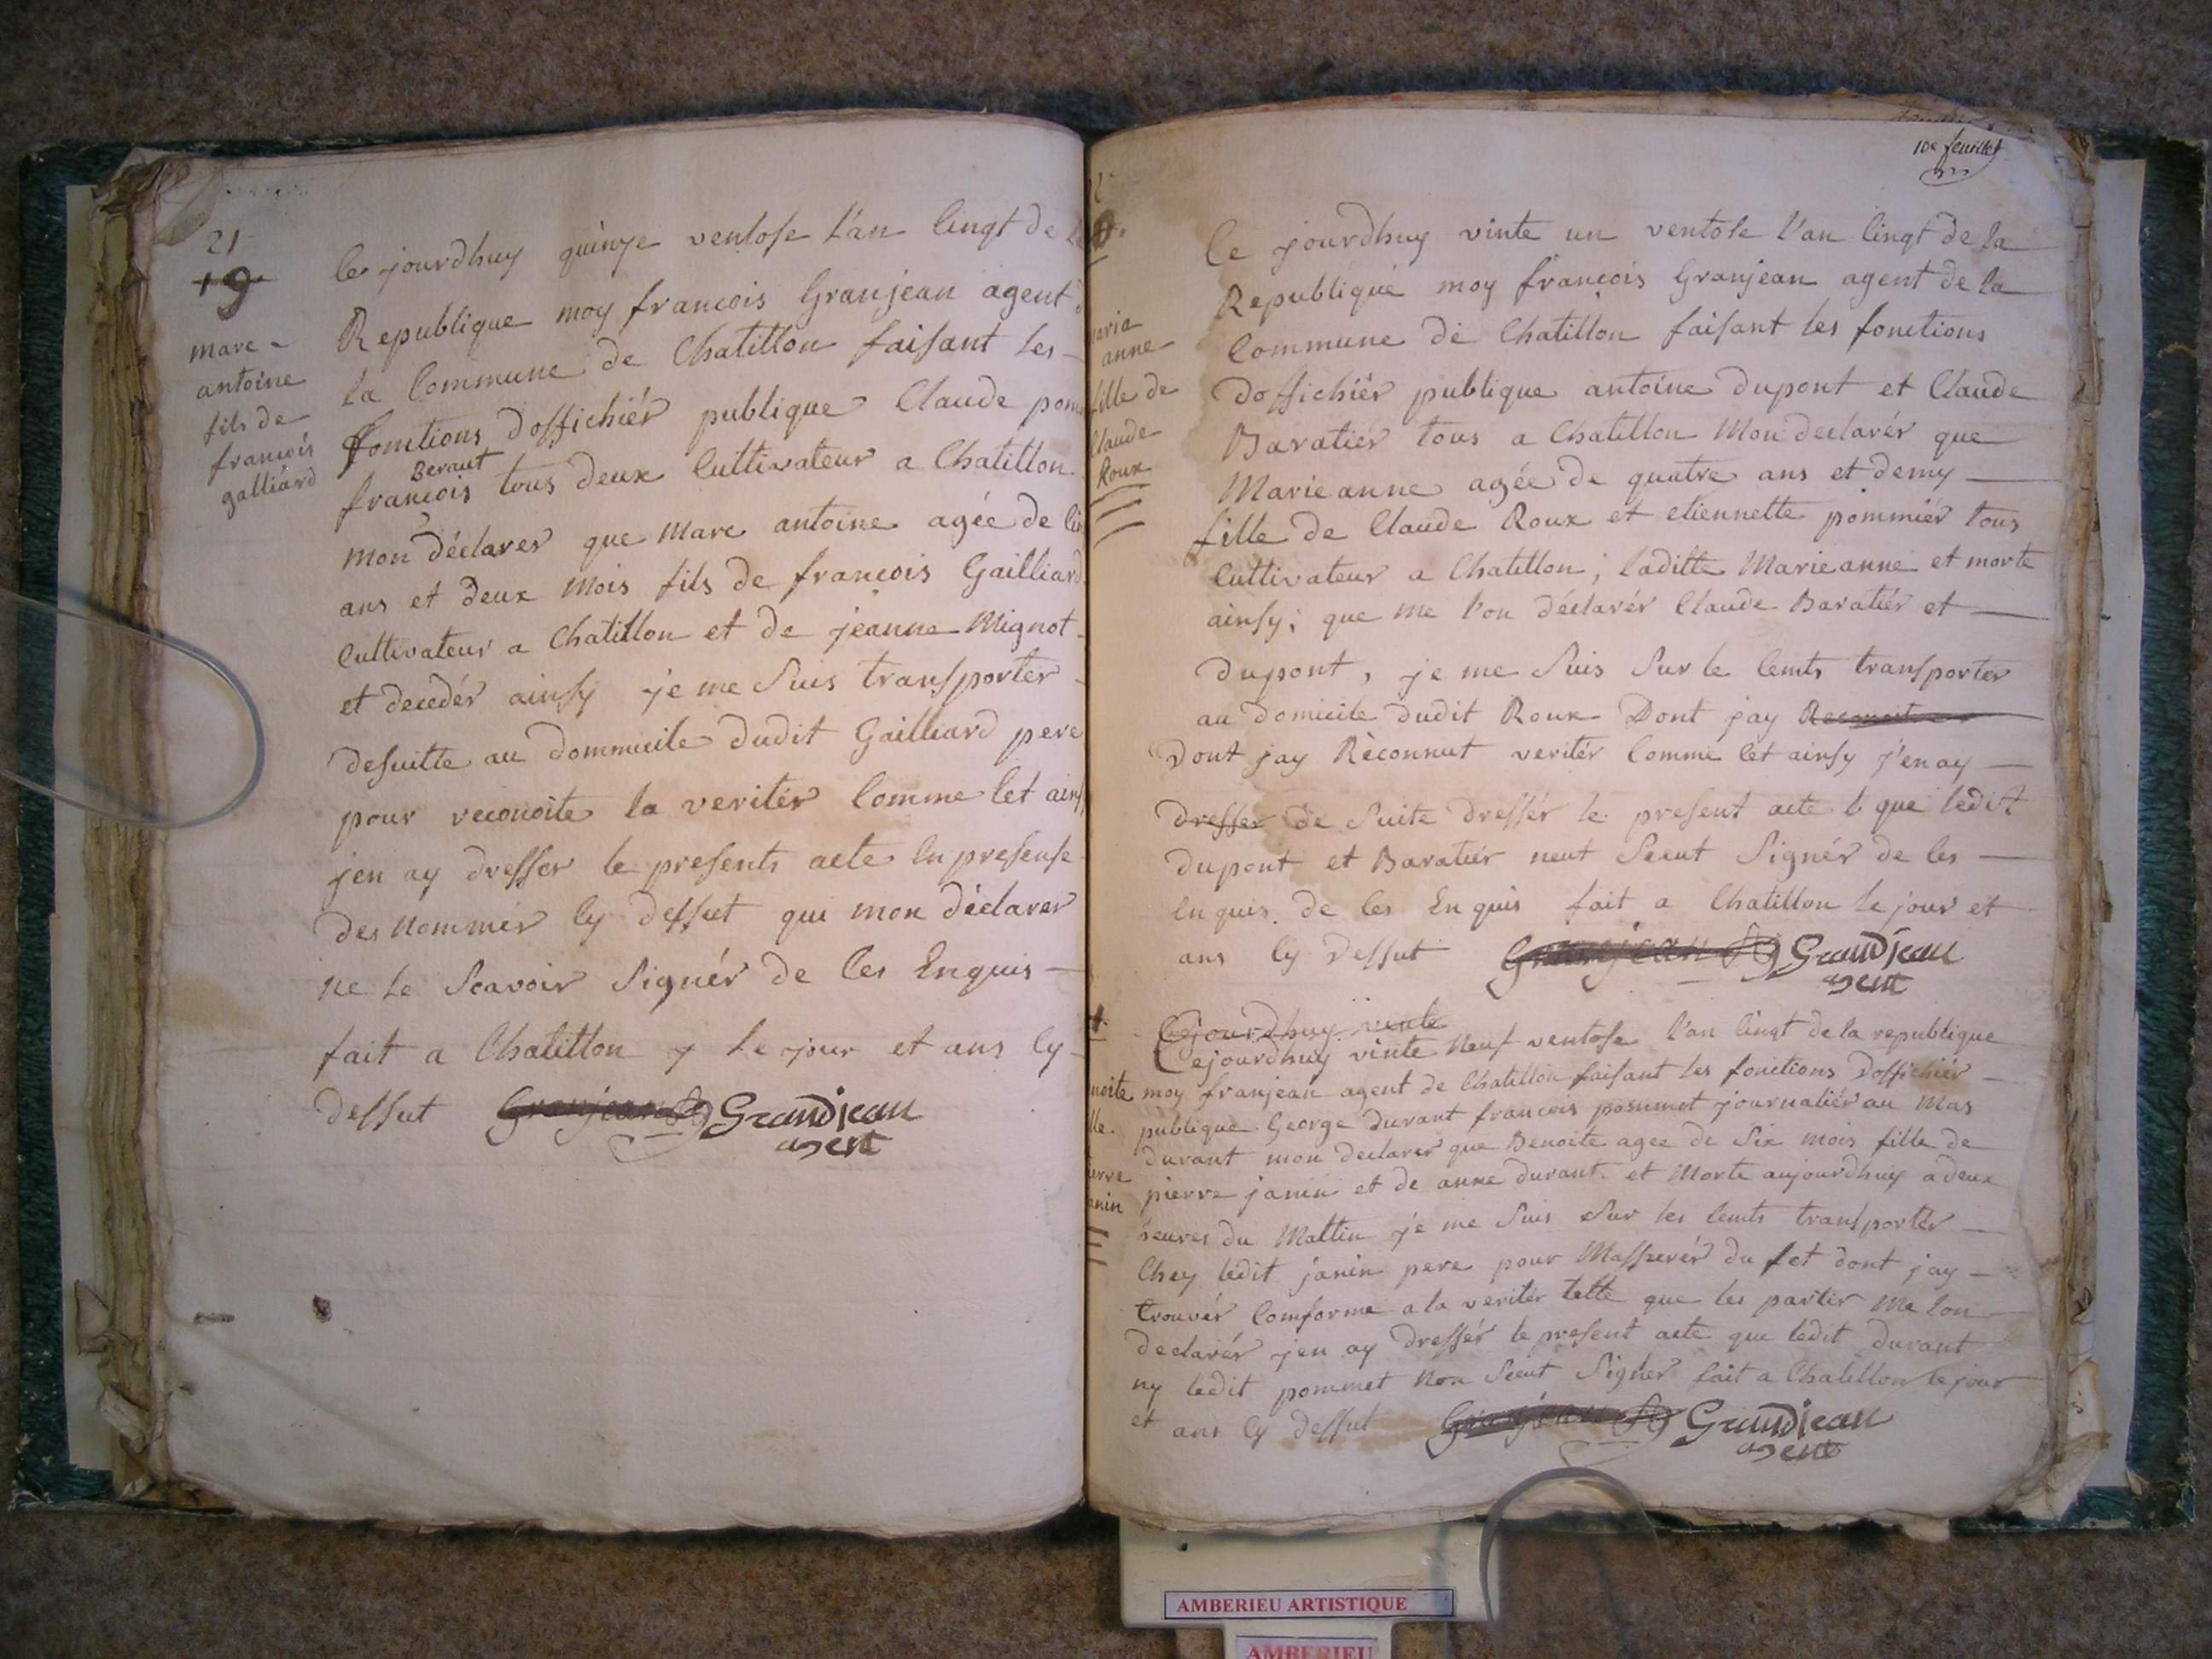 21
19
marc
antoine
fils de
francois
galliard
Ce jourdhuy quinze ventose l'an Cinqt de la
Republique moy francois Granjean agent d
la Commune de Chatillon faisant les
fonctions d'offichiér publique Claude pom
Beraut
francois tous deux Cultivateur a Chatillon
mon déclarer que Marc antoine agée de Cin
ans et deux mois fils de francois Gailliard
Cultivateur a Chatillon et de jeanne Mignot
et decedér ainsy je me suis transporter
desuitte au dommicile dudit Gailliard pere
pour reconoite la veritér Comme Cet ainsy
jen ay dresser le presents acte En presense
des Nommér Cy dessut qui mon déclarer
ne le Scavoir Signér de Ces Enquis
fait a Chatillon y le jour et ans Cy
dessut Granjean Grandjean
agent
10e feuillet
marie
anne
fille de
Claude
Roux
Ce jourdhuy vinte un ventose l'an Cinqt de la
Republique moy francois Granjean agent de la
Commune de Chatillon faisant les fonctions
doffichiér publique antoine dupont et Claude
Baratiér tous a Chatillon Mon declarér que
Marie anne agée de quatre ans et demy
fille de Claude Roux et etiennette pommiér tous
Cultivateur a Chatillon ; laditte Marieanne et morte
ainsy ; que me l'on déclarér Claude Baratiér et
dupont , je me suis sur le Cemts transporter
au domicile dudit Roux Dont jay
Dont jay Réconnut veritér Comme Cet ainsy j'en ay
dresser de Suite dressér le present acte que ledit
dupont et Baratiér neut Sceut Signér de Ces
Enquis. de Ces Enquis fait a Chatillon le jour et
ans Cy dessut Granjean Grandjean
agent
noite
lle
ierre
anin
Cejourdhuy vinte
Cejourdhuy vinte Neuf ventose l'an Cinqt de la republique
moy franjean agent de Chatillon faisant les fonctions doffichiér
publique George durant francois pommet journaliér au Mas
durant mon declarer que Benoite agee de Six mois fille de
pierre janin et de anne durant et Morte aujourdhuy a deux
heures du Mattin je me Suis Sur les Cemts transportér
Chez ledit janin pere pour Massurér du fet dont jay
trouvér Comforme a la veritér telle que les partir Me lon
declarér jen ay dressér le present acte que ledit durant
ny ledit pommet Non Sceut Signer fait a Chatillon le jour
et ans Cy dessut Granjean Grandjean
agent
AMBERIEU ARTISTIQUE
AMBERIEU